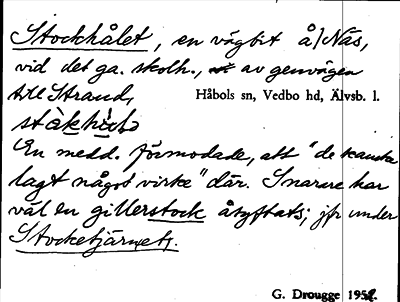 Stockhålet, en vägbit å / Näs,
vid det ga. skolh., av genvägen
till Strand,
Håbols sn, Vedbo hd, Älvsb. l.
En medd. förmodade, att "de kanske
lagt något virke" där. Snarare har
väl en gillerstock åsyftats; jfr under
Stocketjärnet.
G. Drougge 1952.